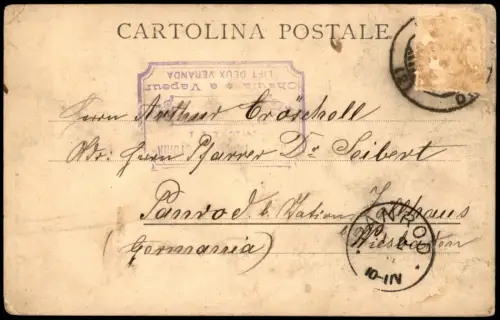 CARTOLINA POSTALE
Chauffage a Vapeur
LIFT DEUX VERANDA
Herrn Arthur Cröscholl
Adr: Herrn Pfarrer Dr Seibert
Panrod b. Station Zollhaus
(Germania) Wiesbaden
PANROD
10-11N